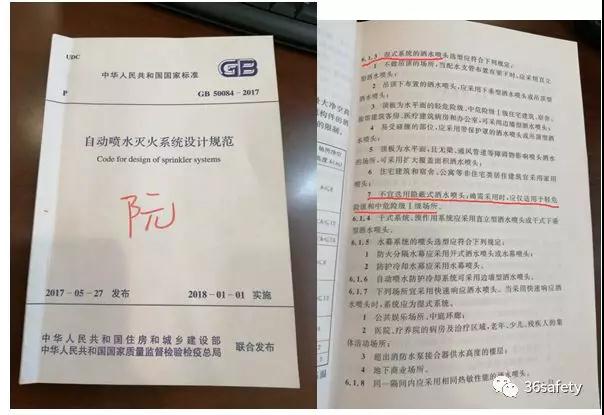 UDC
中华人民共和国国家标准
GB
P
GB 50084-2017
自动喷水灭火系统设计规范
Code for design of sprinkler systems
阮
2017-05-27 发布
2018-01-01 实施
中华人民共和国住房和城乡建设部
中华人民共和国国家质量监督检验检疫总局
联合发布
6.1.3 湿式系统的洒水喷头选型应符合下列规定：
1 不做吊顶的场所，当配水支管布置在梁下时，应采用直立
型洒水喷头；
2 吊顶下布置的洒水喷头，应采用下垂型洒水喷头或吊顶型
洒水喷头；
3 顶板为水平面的轻危险级、中危险级Ⅰ级住宅建筑、宿舍、
旅馆建筑客房、医疗建筑病房和办公室，可采用边墙型洒水喷头；
4 易受碰撞的部位，应采用带保护罩的洒水喷头或吊顶型洒
水喷头；
5 顶板为水平面，且无梁、通风管道等障碍物影响喷头洒水
的场所，可采用扩大覆盖面积洒水喷头；
6 住宅建筑和宿舍、公寓等非住宅类居住建筑宜采用家用
喷头；
7 不宜选用隐蔽式洒水喷头；确需采用时，应仅适用于轻危
险级和中危险级Ⅰ级场所。
6.1.4 干式系统、预作用系统应采用直立型洒水喷头或干式下垂
型洒水喷头。
6.1.5 水幕系统的喷头选型应符合下列规定：
1 防火分隔水幕应采用开式洒水喷头或水幕喷头；
2 防护冷却水幕应采用水幕喷头。
6.1.6 自动喷水防护冷却系统可采用边墙型洒水喷头。
6.1.7 下列场所宜采用快速响应洒水喷头。当采用快速响应洒
水喷头时，系统应为湿式系统。
1 公共娱乐场所、中庭环廊；
2 医院、疗养院的病房及治疗区域，老年、少儿、残疾人的集
体活动场所；
3 超出消防水泵接合器供水高度的楼层；
4 地下商业场所。
6.1.8 同一隔间内应采用相同热敏性能的洒水喷头。
36safety